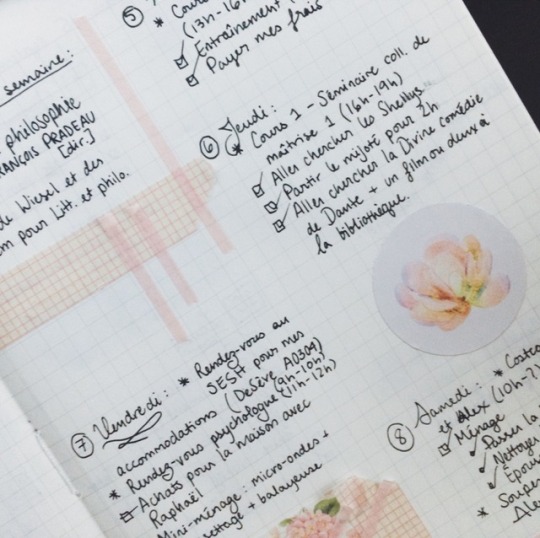 semaine:
philosophie
FRANÇOIS PRADEAU
[dir.]
de Wiesel et des
pour Litt. et philo.
⑤
* Cours
(13h-16h
☑ Entraînement
☑ Payer mes frais
⑥ Jeudi:
* Cours 1 - Séminaire coll. de
maîtrise 1 (16h-19h)
☑ Aller chercher les Shellys
☑ Partir le mijoté pour 2h
☑ Aller chercher la Divine comédie
de Dante + un film ou deux à
la bibliothèque.
⑦ Vendredi: * Rendez-vous au
SESH pour mes
accommodations (DeSève A0309)
(9h-10h)
* Rendez-vous psychologue (11h-12h)
Achats pour la maison avec
Raphaël
Mini-ménage: micro-ondes +
+ balayeuse
⑧ Samedi: *
et Alex (10h-
☑ Ménage
✓ Passer la
✓ Nettoyer
✓
* Souper